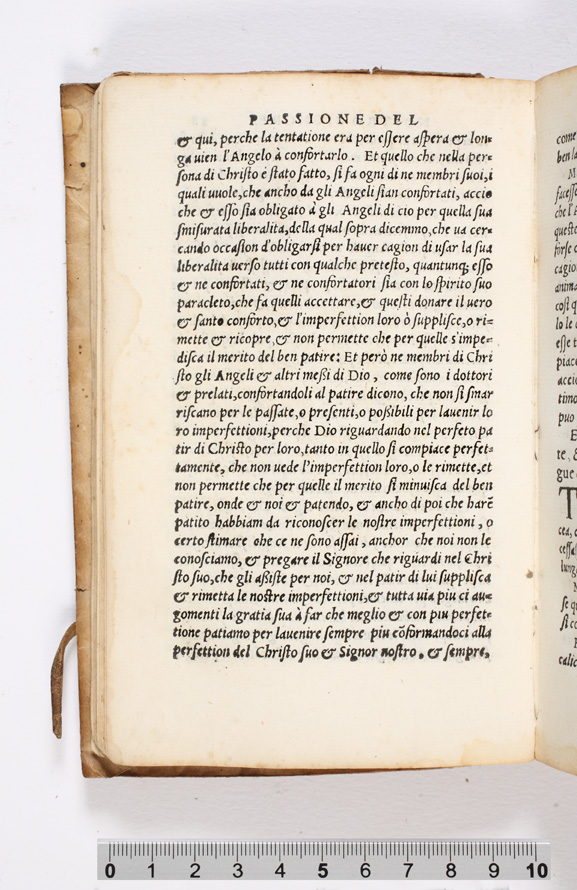 PASSIONE DEL
& qui, perche la tentatione era per eſſere aſpera & lon-
ga uien l'Angelo à confortarlo. Et quello che nella per-
ſona di Chriſto è ſtato fatto, ſi fa ogni di ne membri ſuoi, i
quali uuole, che ancho da gli Angeli ſian confortati, accio
che & eſſo ſia obligato à gli Angeli di cio per quella ſua
ſmiſurata liberalita, della qual ſopra dicemmo, che ua cer-
cando occaſion d'obligarſi per hauer cagion di uſar la ſua
liberalita uerſo tutti con qualche preteſto, quantunq; eſſo
& ne confortati, & ne confortatori ſia con lo ſpirito ſuo
paracleto, che fa quelli accettare, & queſti donare il uero
& santo conforto, & l'imperfettion loro ò ſuppliſce, o ri-
mette & ricopre, & non permette che per quelle s'impe-
diſca il merito del ben patire: Et però ne membri di Chri
ſto gli Angeli & altri meßi di Dio, come ſono i dottori
& prelati, confortandoli al patire dicono, che non ſi ſmar
riſcano per le paſſate, o preſenti, o poßibili per lauenir lo
ro imperfettioni, perche Dio riguardando nel perfeto pa
tir di Chriſto per loro, tanto in quello ſi compiace perfet-
tamente, che non uede l'imperfettion loro, o le rimette, et
non permette che per quelle il merito ſi minuiſca del ben
patire, onde & noi & patendo, & ancho di poi che harẽ
patito habbiam da riconoſcer le noſtre imperfettioni, o
certo ſtimare che ce ne ſono aſſai, anchor che noi non le
conoſciamo, & pregare il Signore che riguardi nel Chri
ſto ſuo, che gli aßiſte per noi, & nel patir di lui ſuppliſca
& rimetta le noſtre imperfettioni, & tutta uia piu ci au-
gomenti la gratia ſua à far che meglio & con piu perfet-
tione patiamo per lauenire ſempre piu cõformandoci alla
perfettion del Chriſto ſuo & Signor noſtro, & ſempre,
come
queſto
cagio
anima
T
0 1 2 3 4 5 6 7 8 9 10